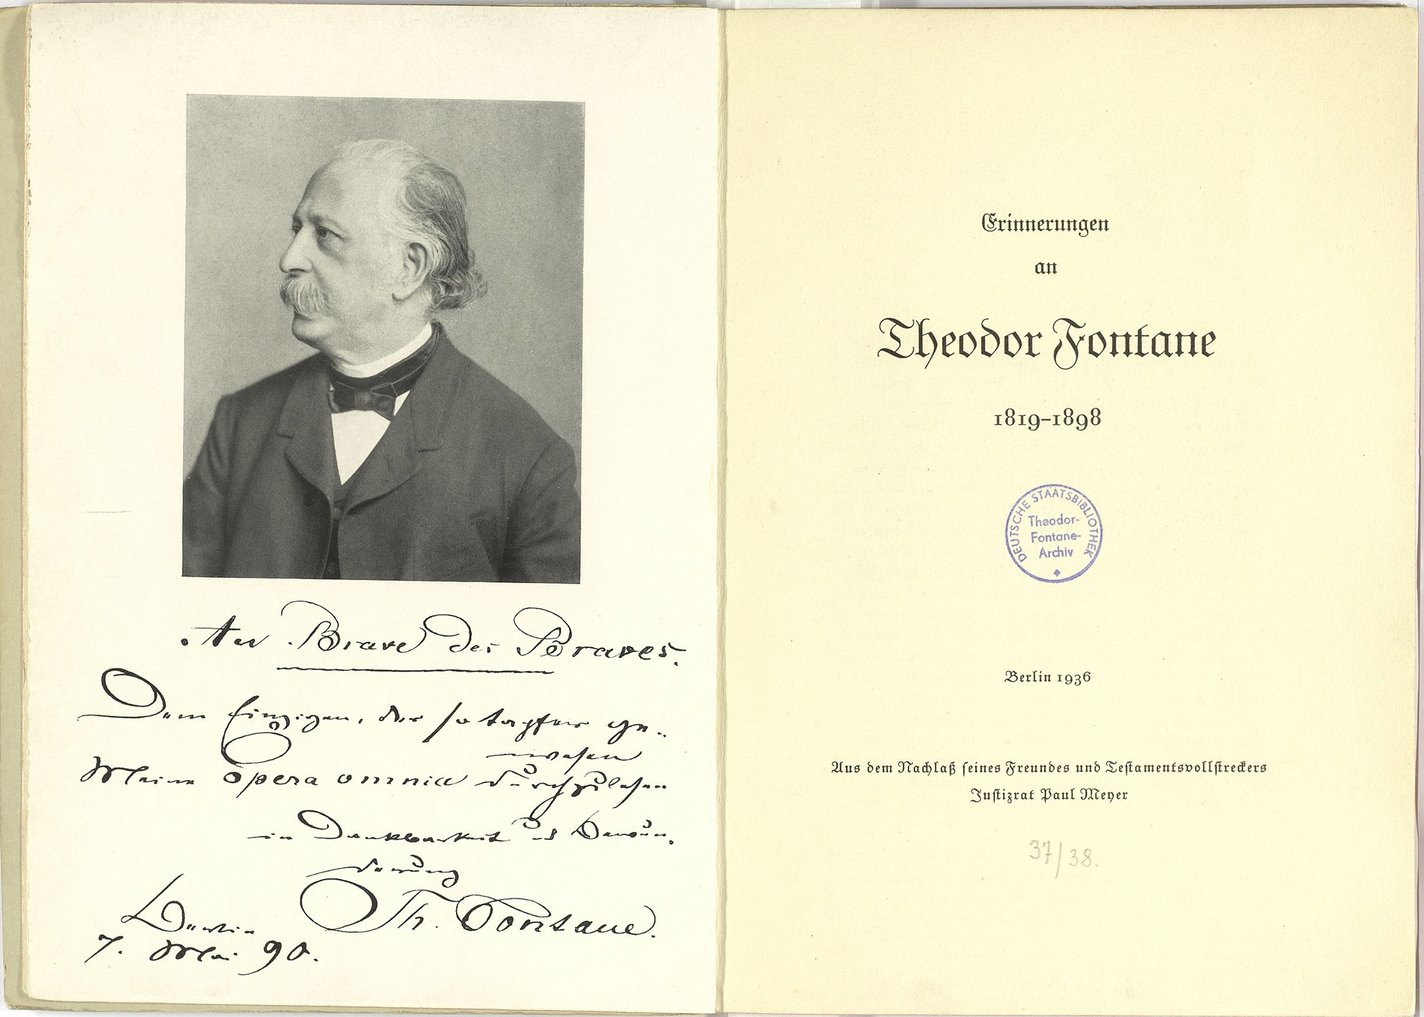 Au Brave des Braves.
Dem Einzigen, der so tapfer ge-
wesen
Meine Opera omnia durchzulesen
in Dankbarkeit u. Bewun-
derung
Th. Fontane.
Berlin
7. Mai 90.
Erinnerungen
an
Theodor Fontane
1819–1898
DEUTSCHE STAATSBIBLIOTHEK
Theodor-
Fontane-
Archiv
Berlin 1936
Aus dem Nachlaß seines Freundes und Testamentsvollstreckers
Justizrat Paul Meyer
37/38.